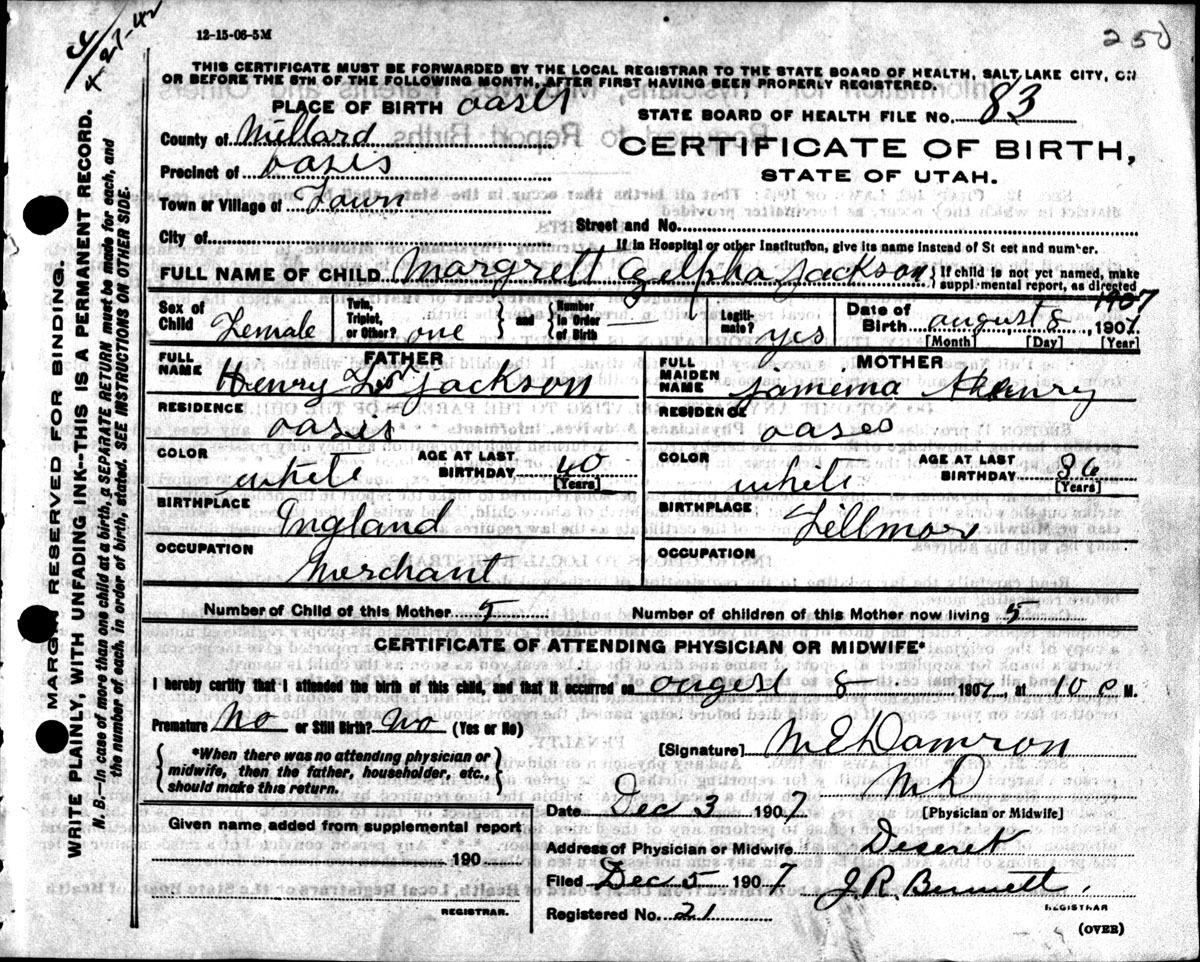 4-27-42
12-15-06-5M
250
THIS CERTIFICATE MUST BE FORWARDED BY THE LOCAL REGISTRAR TO THE STATE BOARD OF HEALTH, SALT LAKE CITY, ON
OR BEFORE THE 5TH OF THE FOLLOWING MONTH, AFTER FIRST HAVING BEEN PROPERLY REGISTERED.
PLACE OF BIRTH oases
STATE BOARD OF HEALTH FILE NO. 83
County of Millard
CERTIFICATE OF BIRTH,
Precinct of oases
STATE OF UTAH.
Town or Village of Town
Street and No.
City of
If in Hospital or other Institution, give its name instead of St eet and number.
FULL NAME OF CHILD Margrett Zelpha Jackson
If child is not yet named, make
suppl·mental report, as directed
Sex of Child Female
Twin, Triplet, or Other? one
and
Number in Order of Birth —
Legiti-mate? yes
Date of Birth august 8, 1907 1907
[Month] [Day] [Year]
FATHER
FULL NAME Henry Jackson
RESIDENCE
oases
COLOR white
AGE AT LAST BIRTHDAY 40
[Years]
BIRTHPLACE
Ingland
OCCUPATION
Merchant
MOTHER
FULL MAIDEN NAME Jamema Henry
RESIDENCE
oases
COLOR white
AGE AT LAST BIRTHDAY 36
[Years]
BIRTHPLACE
Fillmore
OCCUPATION
Number of Child of this Mother 5
Number of children of this Mother now living 5
CERTIFICATE OF ATTENDING PHYSICIAN OR MIDWIFE*
I hereby certify that I attended the birth of this child, and that it occurred on augest 8 1907, at 10 M.
Premature No or Still Birth? No (Yes or No)
*When there was no attending physician or
midwife, then the father, householder, etc.,
should make this return.
[Signature] M E Damron
M D
[Physician or Midwife]
Date Dec 3 1907
Given name added from supplemental report
190
REGISTRAR.
Address of Physician or Midwife Deseret
Filed Dec 5 1907 J.R. Bennett,
REGISTRAR
Registered No. 21
(OVER)
MARGIN RESERVED FOR BINDING.
WRITE PLAINLY, WITH UNFADING INK--THIS IS A PERMANENT RECORD.
N. B.—In case of more than one child at a birth, a SEPARATE RETURN must be made for each, and
the number of each, in order of birth, stated. SEE INSTRUCTIONS ON OTHER SIDE.